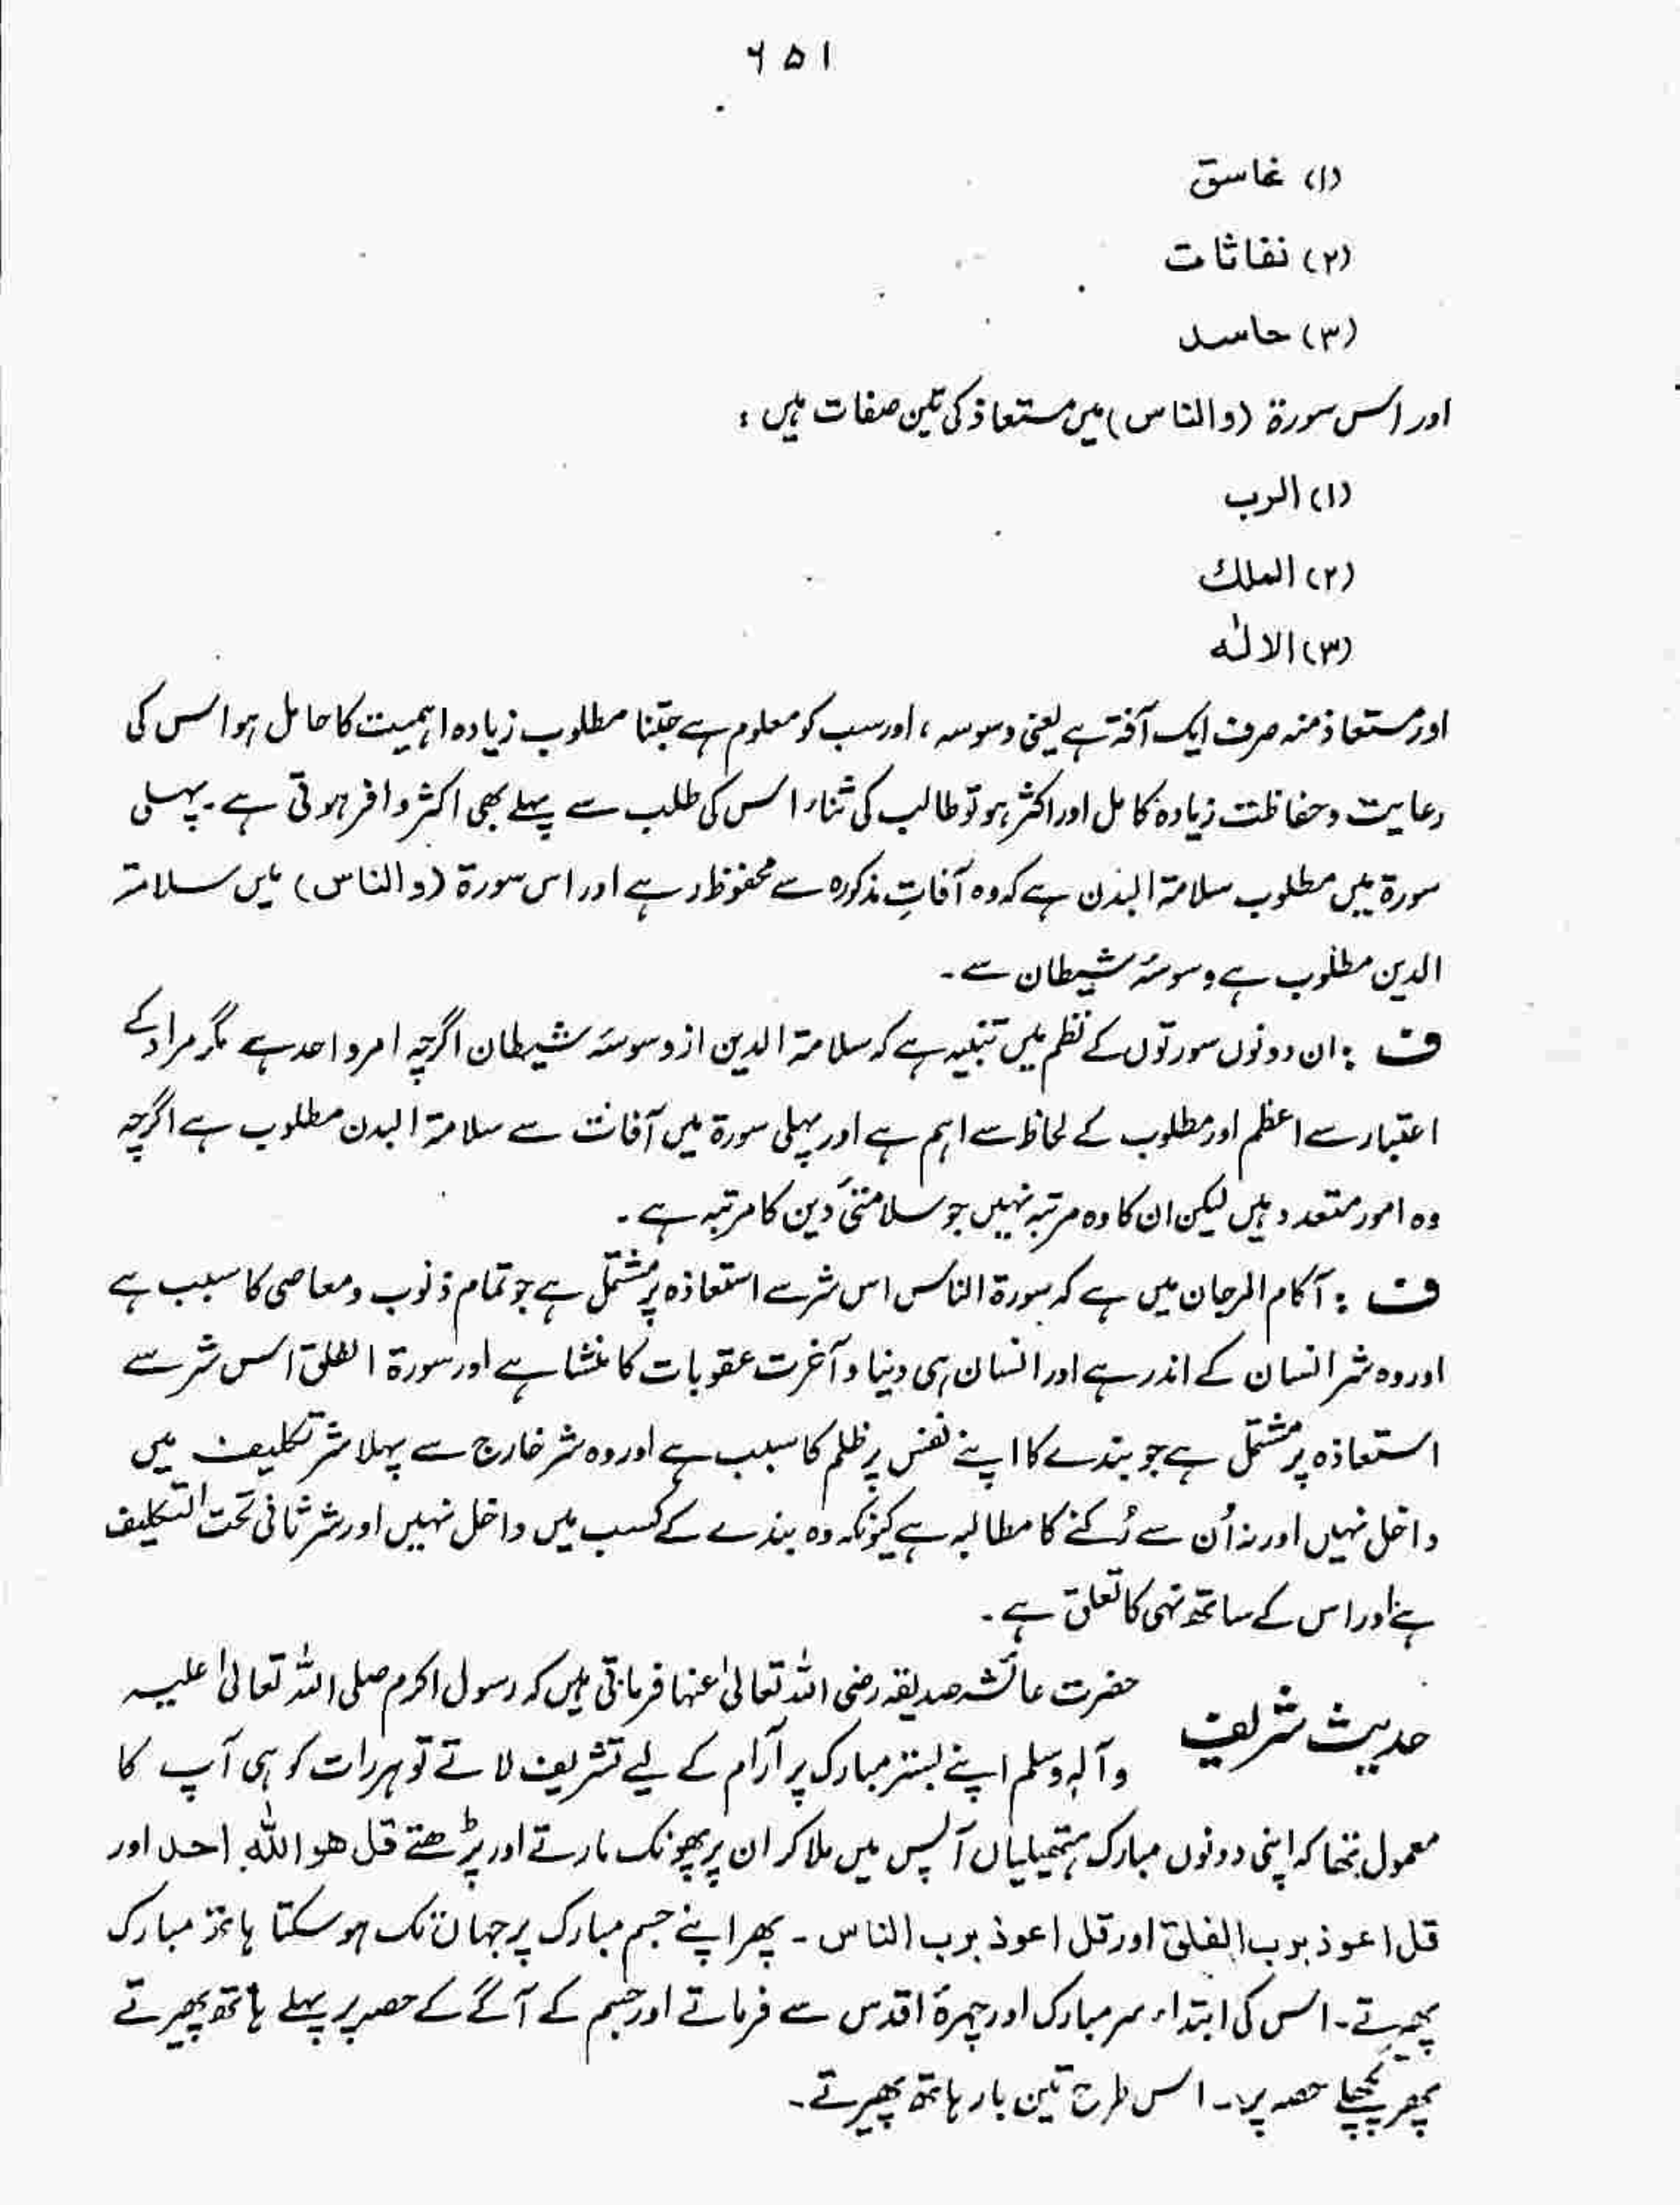 ۶۵۱
(۱) غاسق
(۲) نفاثات
(۳) حاسد
اور اس سورۃ (والناس) میں مستعاذ کی تین صفات ہیں :
(۱) الرب
(۲) الملك
(۳) الالٰه
اور مستعاذ منہ صرف ایک آفۃ ہے یعنی وسوسہ ، اور سب کو معلوم ہے جتنا مطلوب زیادہ اہمیت کا حامل ہو اس کی
رعایت و حفاظت زیادہ کامل اور اکثر ہو تو طالب کی ثناء اس کی طلب سے پہلے بھی اکثر و افر ہوتی ہے ۔ پہلی
سورۃ میں مطلوب سلامۃ البدن ہے کہ وہ آفاتِ مذکورہ سے محفوظ رہے اور اس سورۃ (والناس) میں سلامۃ
الدین مطلوب ہے وسوسۂ شیطان سے ۔
ف : ان دونوں سورتوں کے نظم میں تنبیہ ہے کہ سلامۃ الدین از وسوسۂ شیطان اگرچہ امر واحد ہے مگر مراد کے
اعتبار سے اعظم اور مطلوب کے لحاظ سے اہم ہے اور پہلی سورۃ میں آفات سے سلامۃ البدن مطلوب ہے اگرچہ
وہ امور متعدد ہیں لیکن ان کا وہ مرتبہ نہیں جو سلامتیٔ دین کا مرتبہ ہے ۔
ف : آکام المرجان میں ہے کہ سورۃ الناس اس شر سے استعاذہ پر مشتمل ہے جو تمام ذنوب و معاصی کا سبب ہے
اور وہ شر انسان کے اندر ہے اور انسان ہی دنیا و آخرت عقوبات کا منشا ہے اور سورۃ الفلق اس شر سے
استعاذہ پر مشتمل ہے جو بندے کا اپنے نفس پر ظلم کا سبب ہے اور وہ شر خارج سے پہلا شر تکلیف میں
داخل نہیں اور نہ اُن سے رُکنے کا مطالبہ ہے کیونکہ وہ بندے کے کسب میں داخل نہیں اور شر ثانی تحت التکلیف
ہے اور اس کے ساتھ نہی کا تعلق ہے ۔
حدیث شریف حضرت عائشہ صدیقہ رضی اللہ تعالیٰ عنہا فرماتی ہیں کہ رسول اکرم صلی اللہ تعالیٰ علیہ
وآلہٖ وسلم اپنے بستر مبارک پر آرام کے لیے تشریف لاتے تو ہر رات کو ہی آپ کا
معمول تھا کہ اپنی دونوں مبارک ہتھیلیاں آپس میں ملا کر ان پر پھونک مارتے اور پڑھتے قل هو الله احد اور
قل اعوذ برب الفلق اور قل اعوذ برب الناس ۔ پھر اپنے جسم مبارک پر جہاں تک ہو سکتا ہاتھ مبارک
پھیرتے ۔ اس کی ابتداء سر مبارک اور چہرۂ اقدس سے فرماتے اور جسم کے آگے کے حصہ پر پہلے ہاتھ پھیرتے
پھر پچھلے حصہ پر ۔ اس طرح تین بار ہاتھ پھیرتے ۔